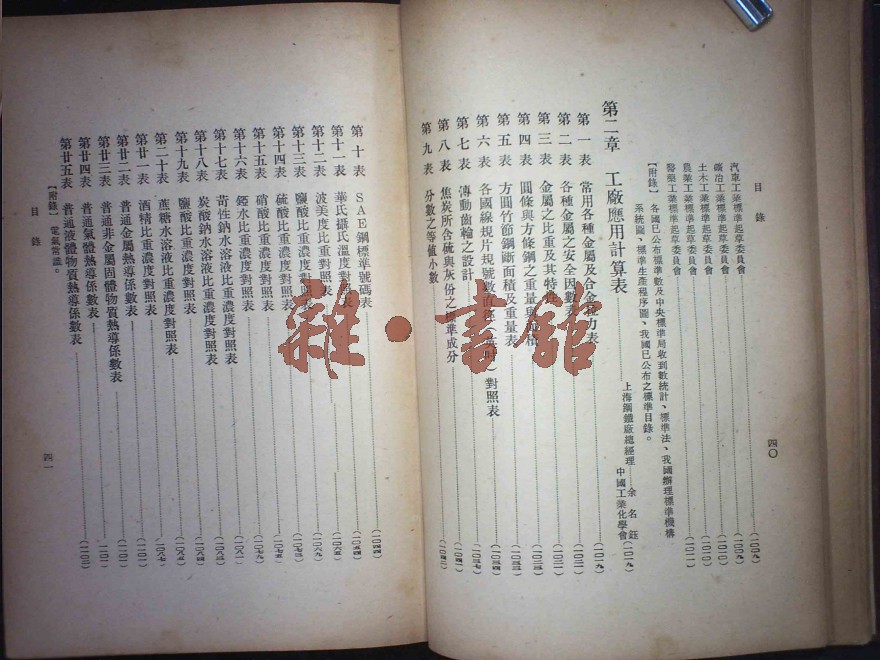 目錄
四〇
汽車工業標準起草委員會（一〇〇九）
礦冶工業標準起草委員會（一〇一〇）
土木工業標準起草委員會（一〇一〇）
農業工業標準起草委員會（一〇一一）
醫藥工業標準起草委員會
【附錄】各國已公布標準數及中央標準局收到數統計、標準法、我國辦理標準機構
系統圖、標準生產程序圖、我國已公布之標準目錄。
第二章 工廠應用計算表
上海鋼鐵廠總經理 余名鈺
中國工業化學會（一〇一九）
第一表 常用各種金屬及合金 力表（一〇一九）
第二表 各種金屬之安全因數表
第三表 金屬之比重及其特性
第四表 圓條與方條鋼之重量與
第五表 方圓竹節鋼斷面積及重量表
第六表 各國線規片規號數直徑 對照表
第七表 傳動齒輪之設計
第八表 焦炭所含硫與灰份之標準成分
第九表 分數之等值小數
第十表 SAE鋼標準號碼表
第十一表 華氏攝氏溫度對照表
第十二表 波美度比重對照表
第十三表 鹽酸比重濃度對照表
第十四表 硫酸比重濃度對照表
第十五表 硝酸比重濃度對照表
第十六表 錏水比重濃度對照表
第十七表 苛性鈉水溶液比重濃度對照表
第十八表 炭酸鈉水溶液比重濃度對照表
第十九表 鹽酸比重濃度對照表
第二十表 蔗糖水溶液比重濃度對照表
第廿一表 酒精比重濃度對照表
第廿二表 普通金屬熱導係數表
第廿三表 普通非金屬固體物質熱導係數表
第廿四表 普通氣體熱導係數表
第廿五表 普通液體物質熱導係數表
【附錄】電氣常識。
目錄
四一
雜·書館